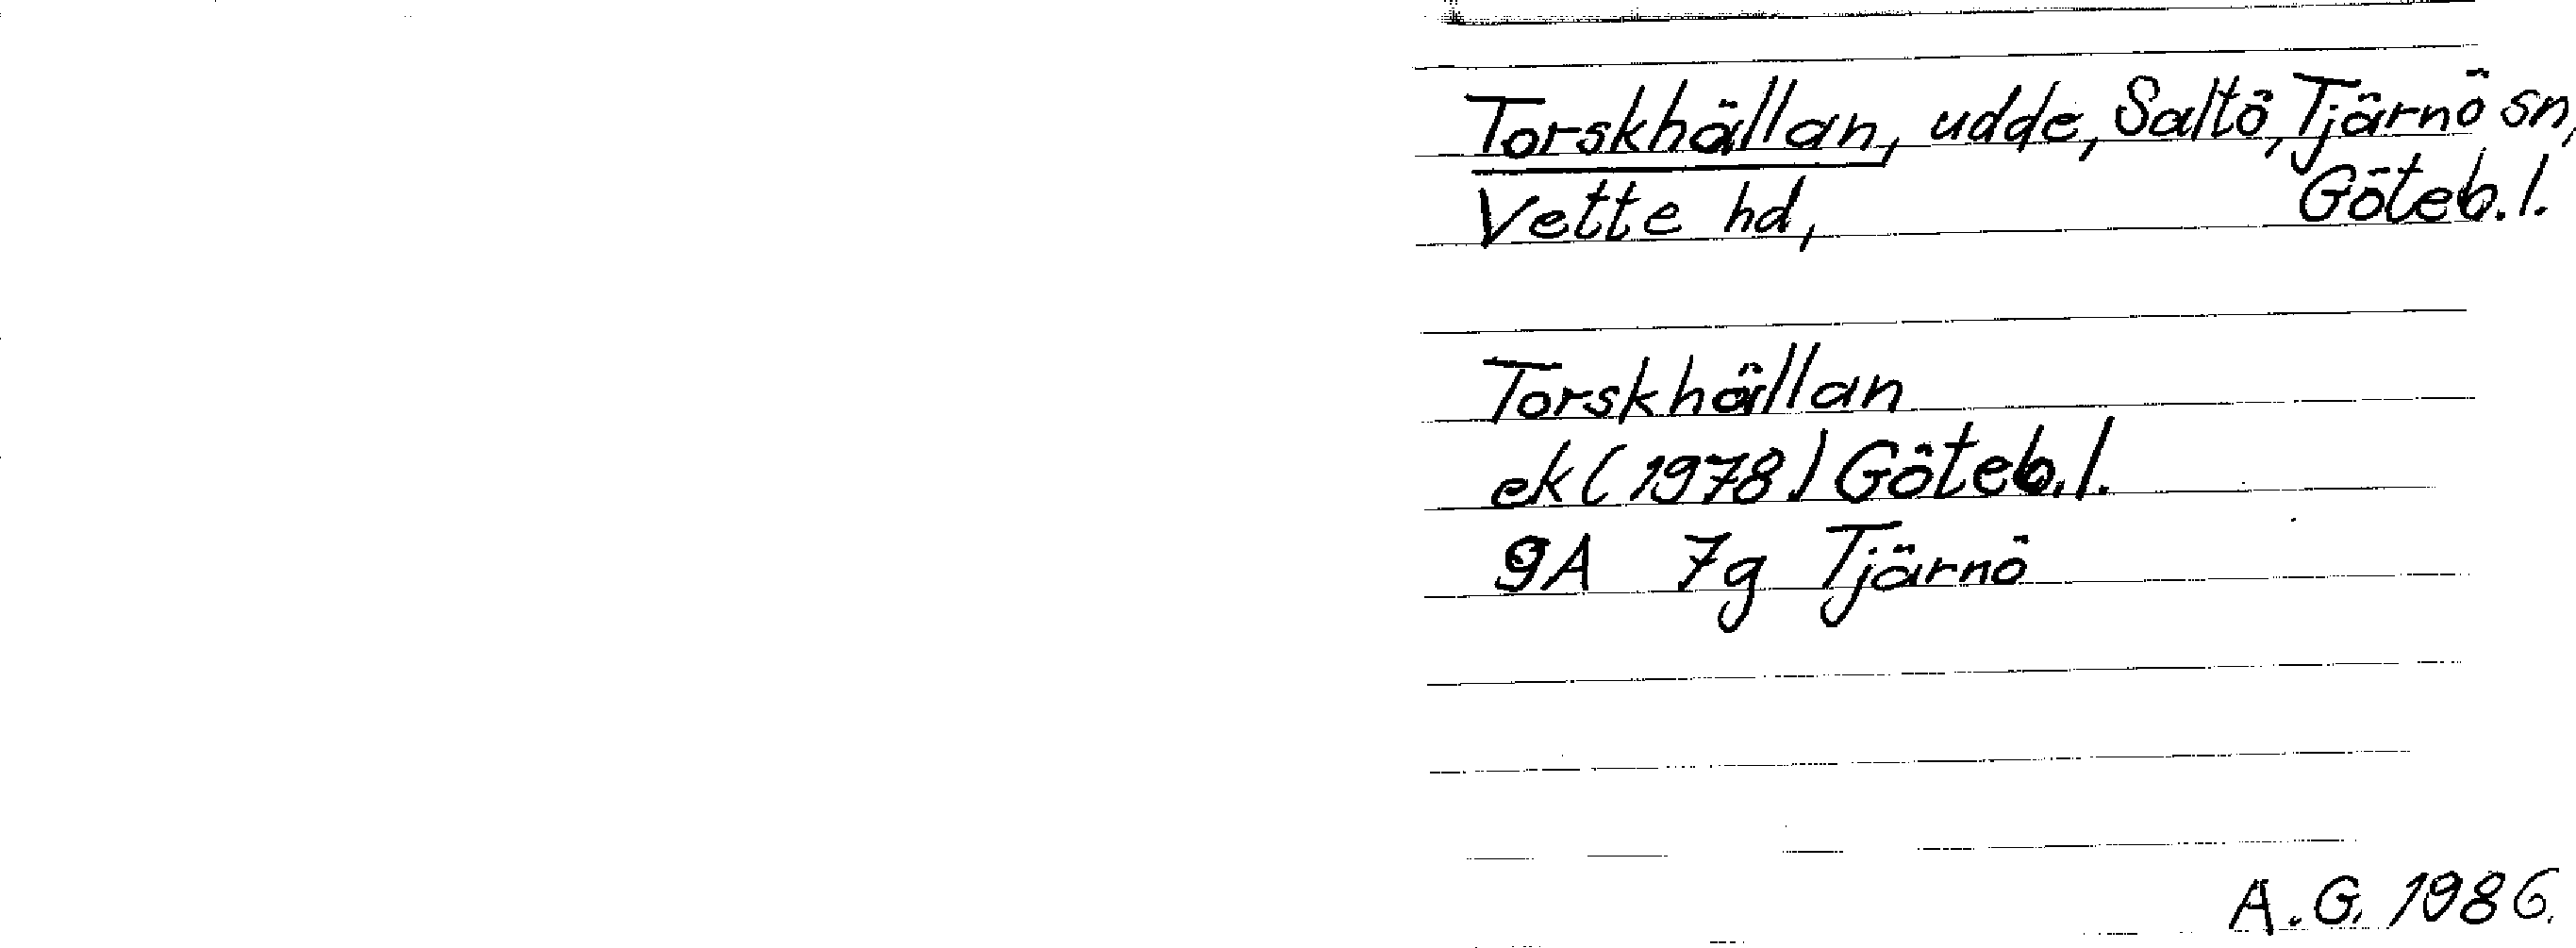 Torskhällan, udde, Saltö, Tjärnö sn,
Vette hd, Göteb.l.
Torskhällan
ek (1978) Göteb.l.
9A 7g Tjärnö
A.G. 1986.